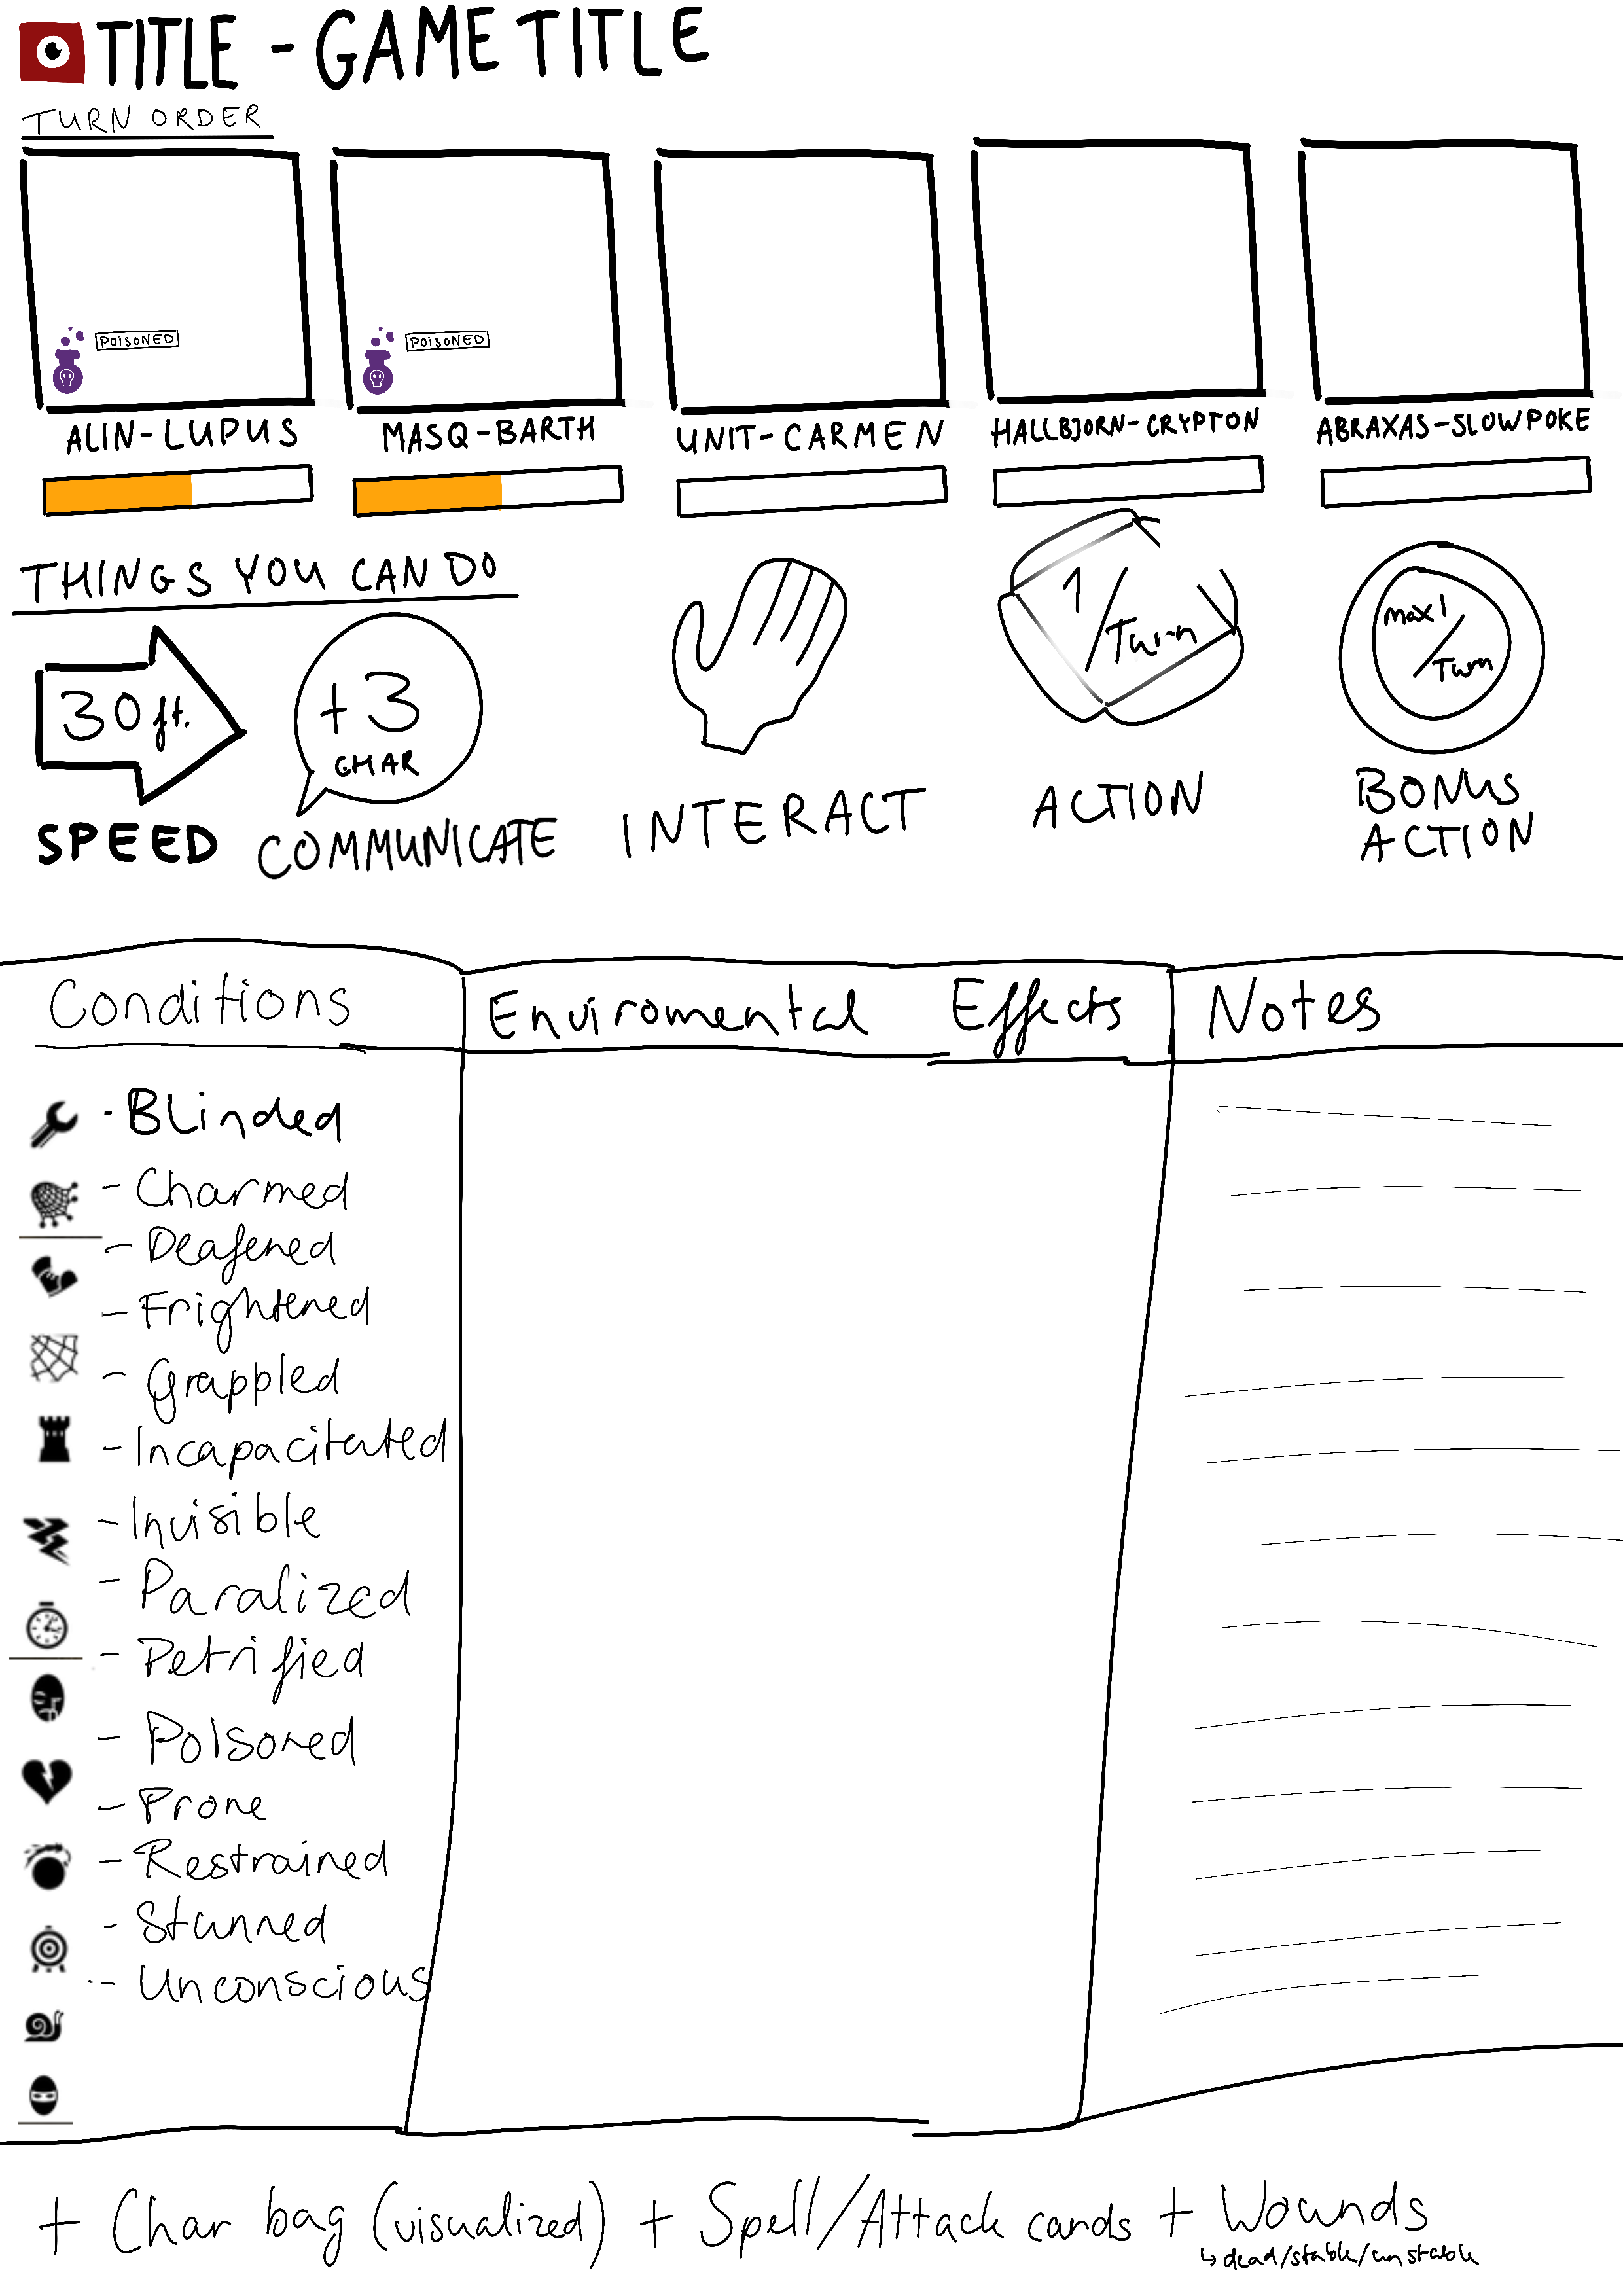 TITLE - GAME TITLE
TURN ORDER
POISONED
POISONED
ALIN-LUPUS
MASQ-BARTH
UNIT-CARMEN
HALLBJORN-CRYPTON
ABRAXAS-SLOWPOKE
THINGS YOU CAN DO
30 ft.
SPEED
+3
CHAR
COMMUNICATE
INTERACT
1/Turn
ACTION
max 1/Turn
BONUS
ACTION
Conditions
- Blinded
- Charmed
- Deafened
- Frightened
- Grappled
- Incapacitated
- Invisible
- Paralized
- Petrified
- Poisoned
- Prone
- Restrained
- Stunned
- Unconscious
Enviromental Effects
Notes
+ Char bag (visualized) + Spell/Attack cards + Wounds
↳ dead/stable/unstable